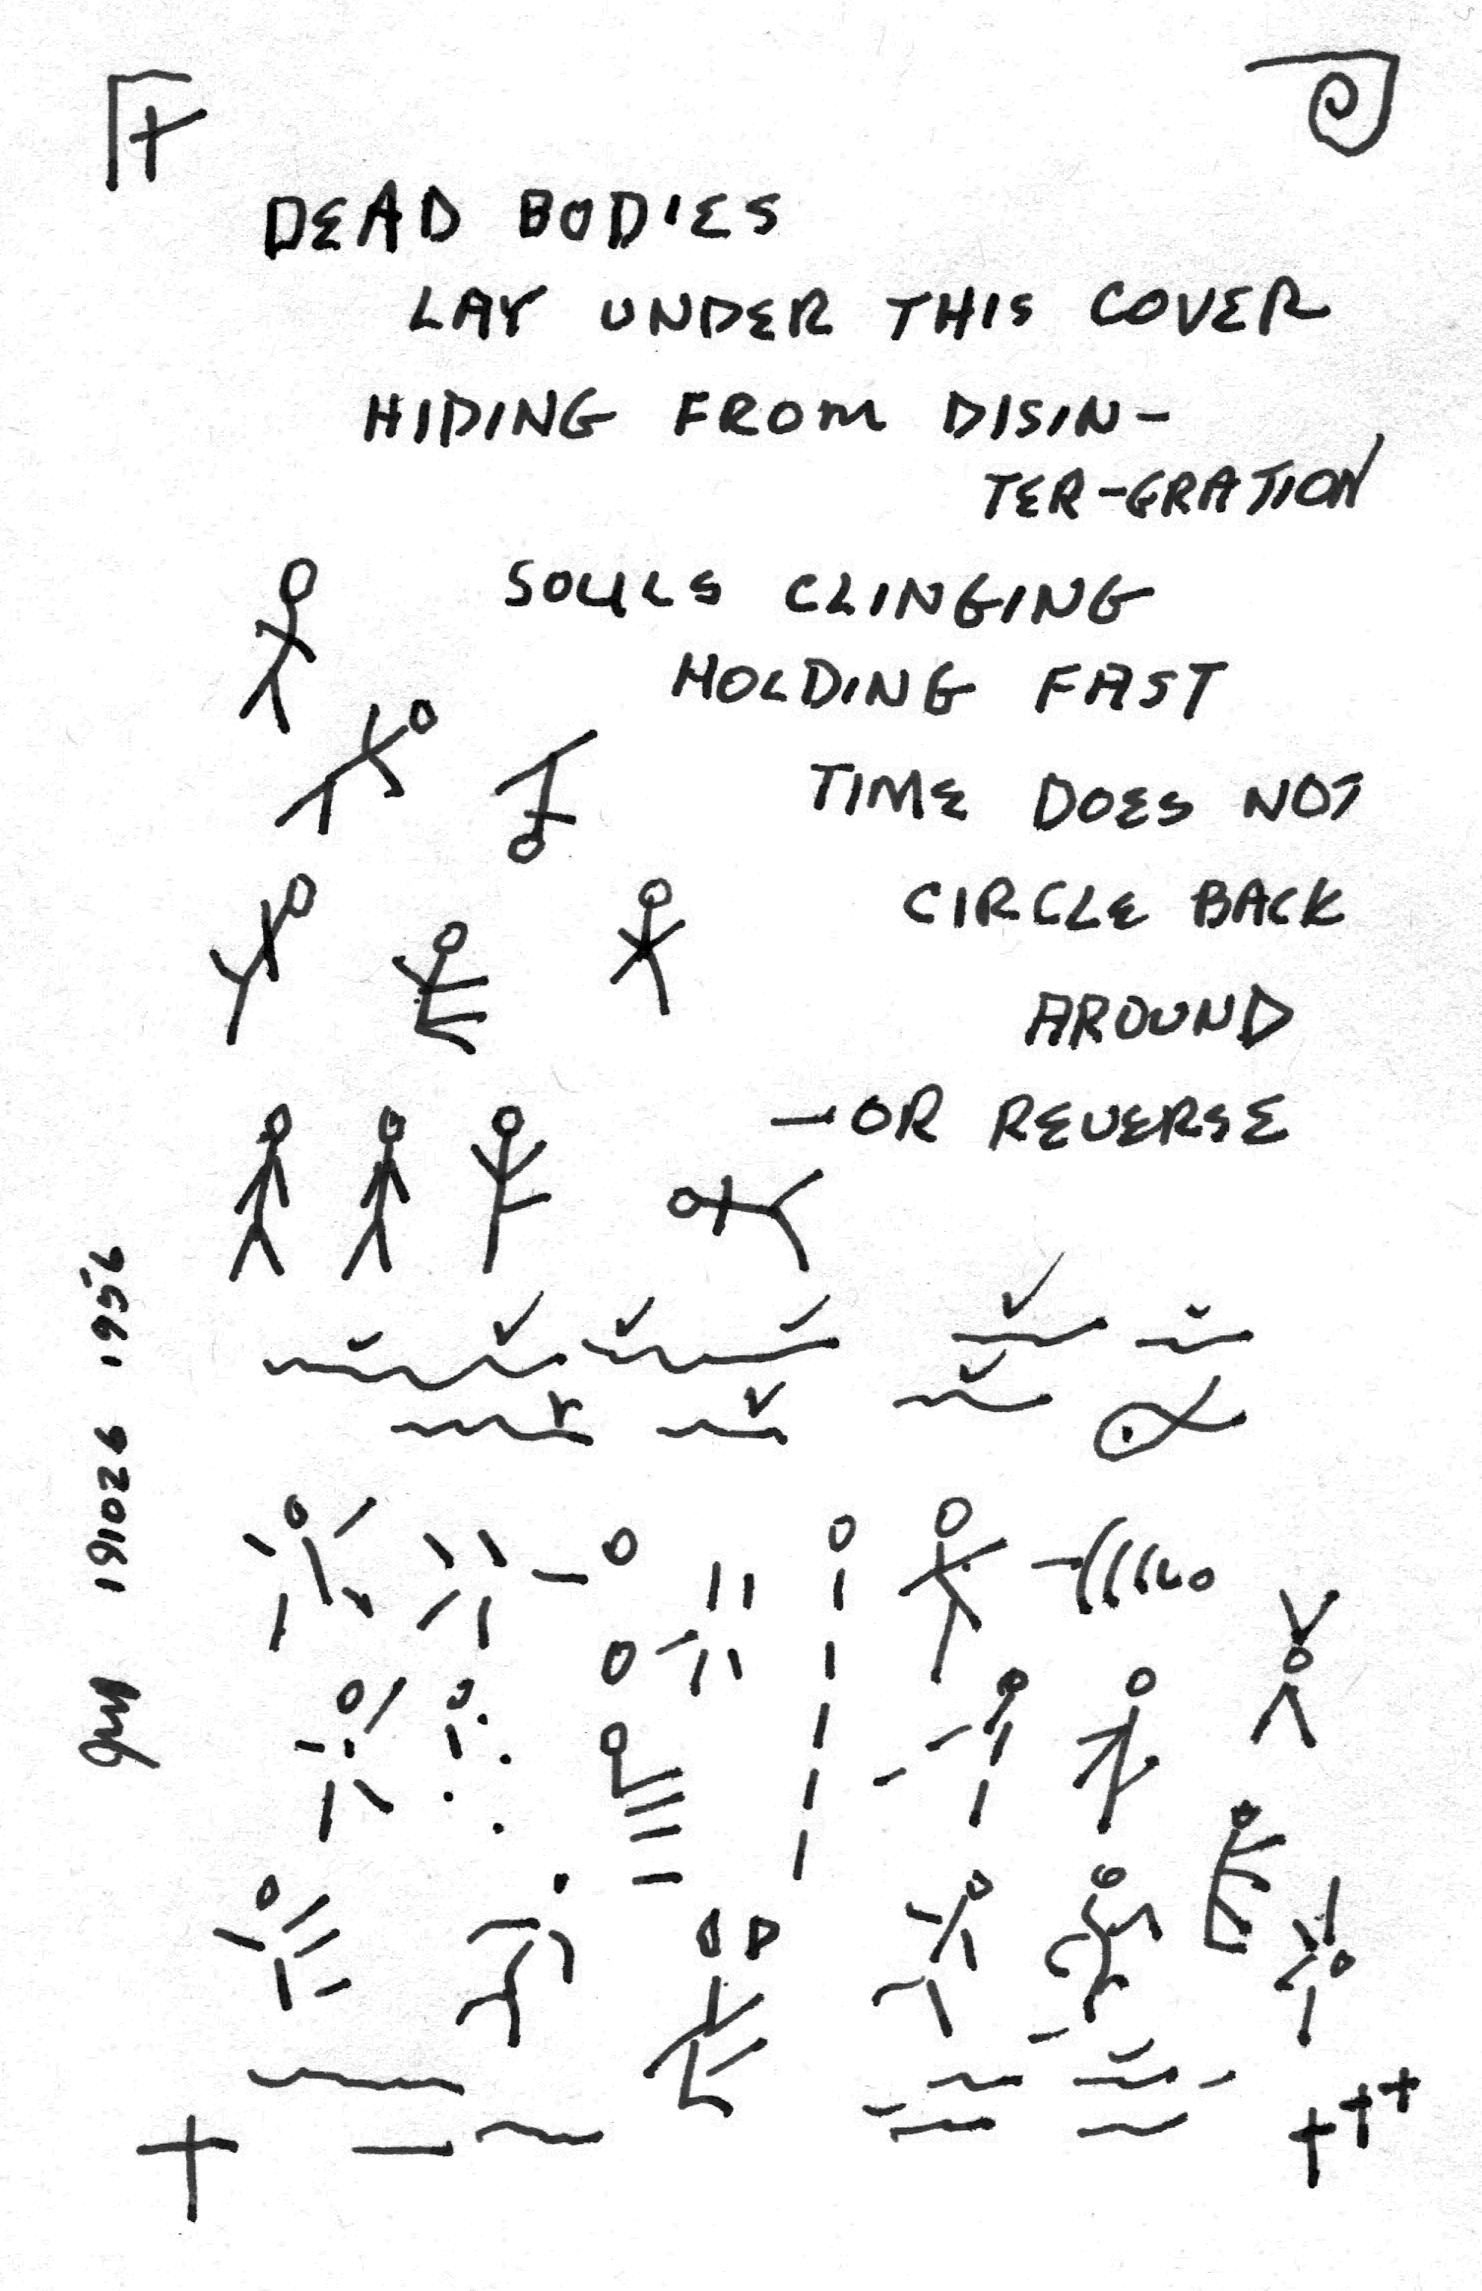 DEAD BODIES
LAY UNDER THIS COVER
HIDING FROM DISIN-
TER-GRATION
SOULS CLINGING
HOLDING FAST
TIME DOES NOT
CIRCLE BACK
AROUND
—OR REVERSE
191026 1956